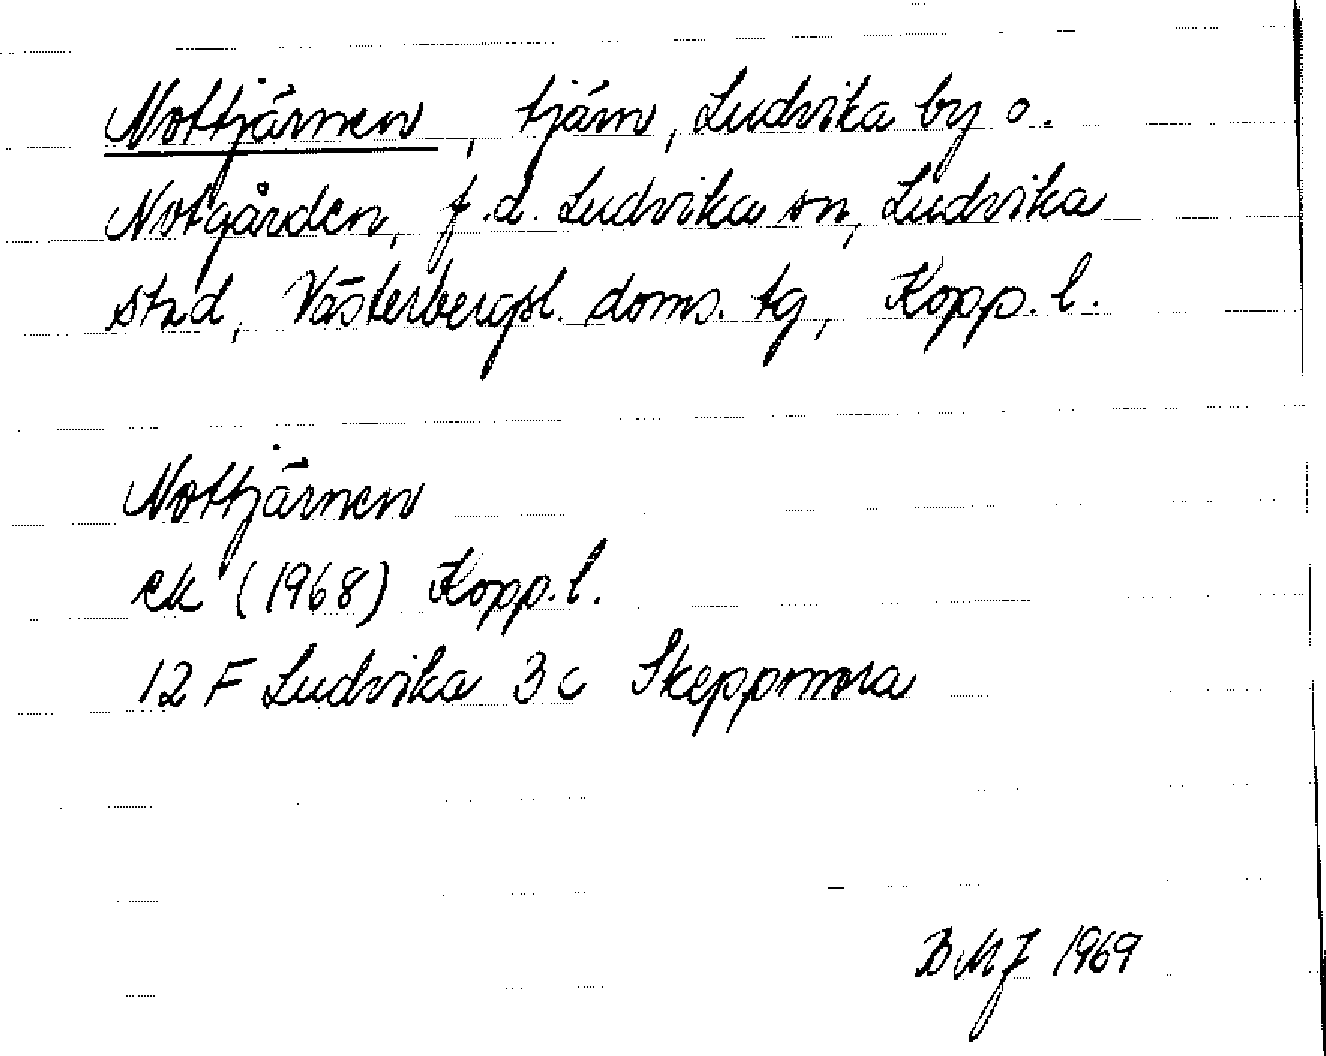 Nottjärnen, tjärn, Ludvika by o.
Notgården, f.d. Ludvika sn, Ludvika
stad, Västerbergsl. doms. tg, Kopp. l.
Nottjärnen
ek (1968) Kopp. l.
12 F Ludvika 3 c Skeppmora
BMJ 1969